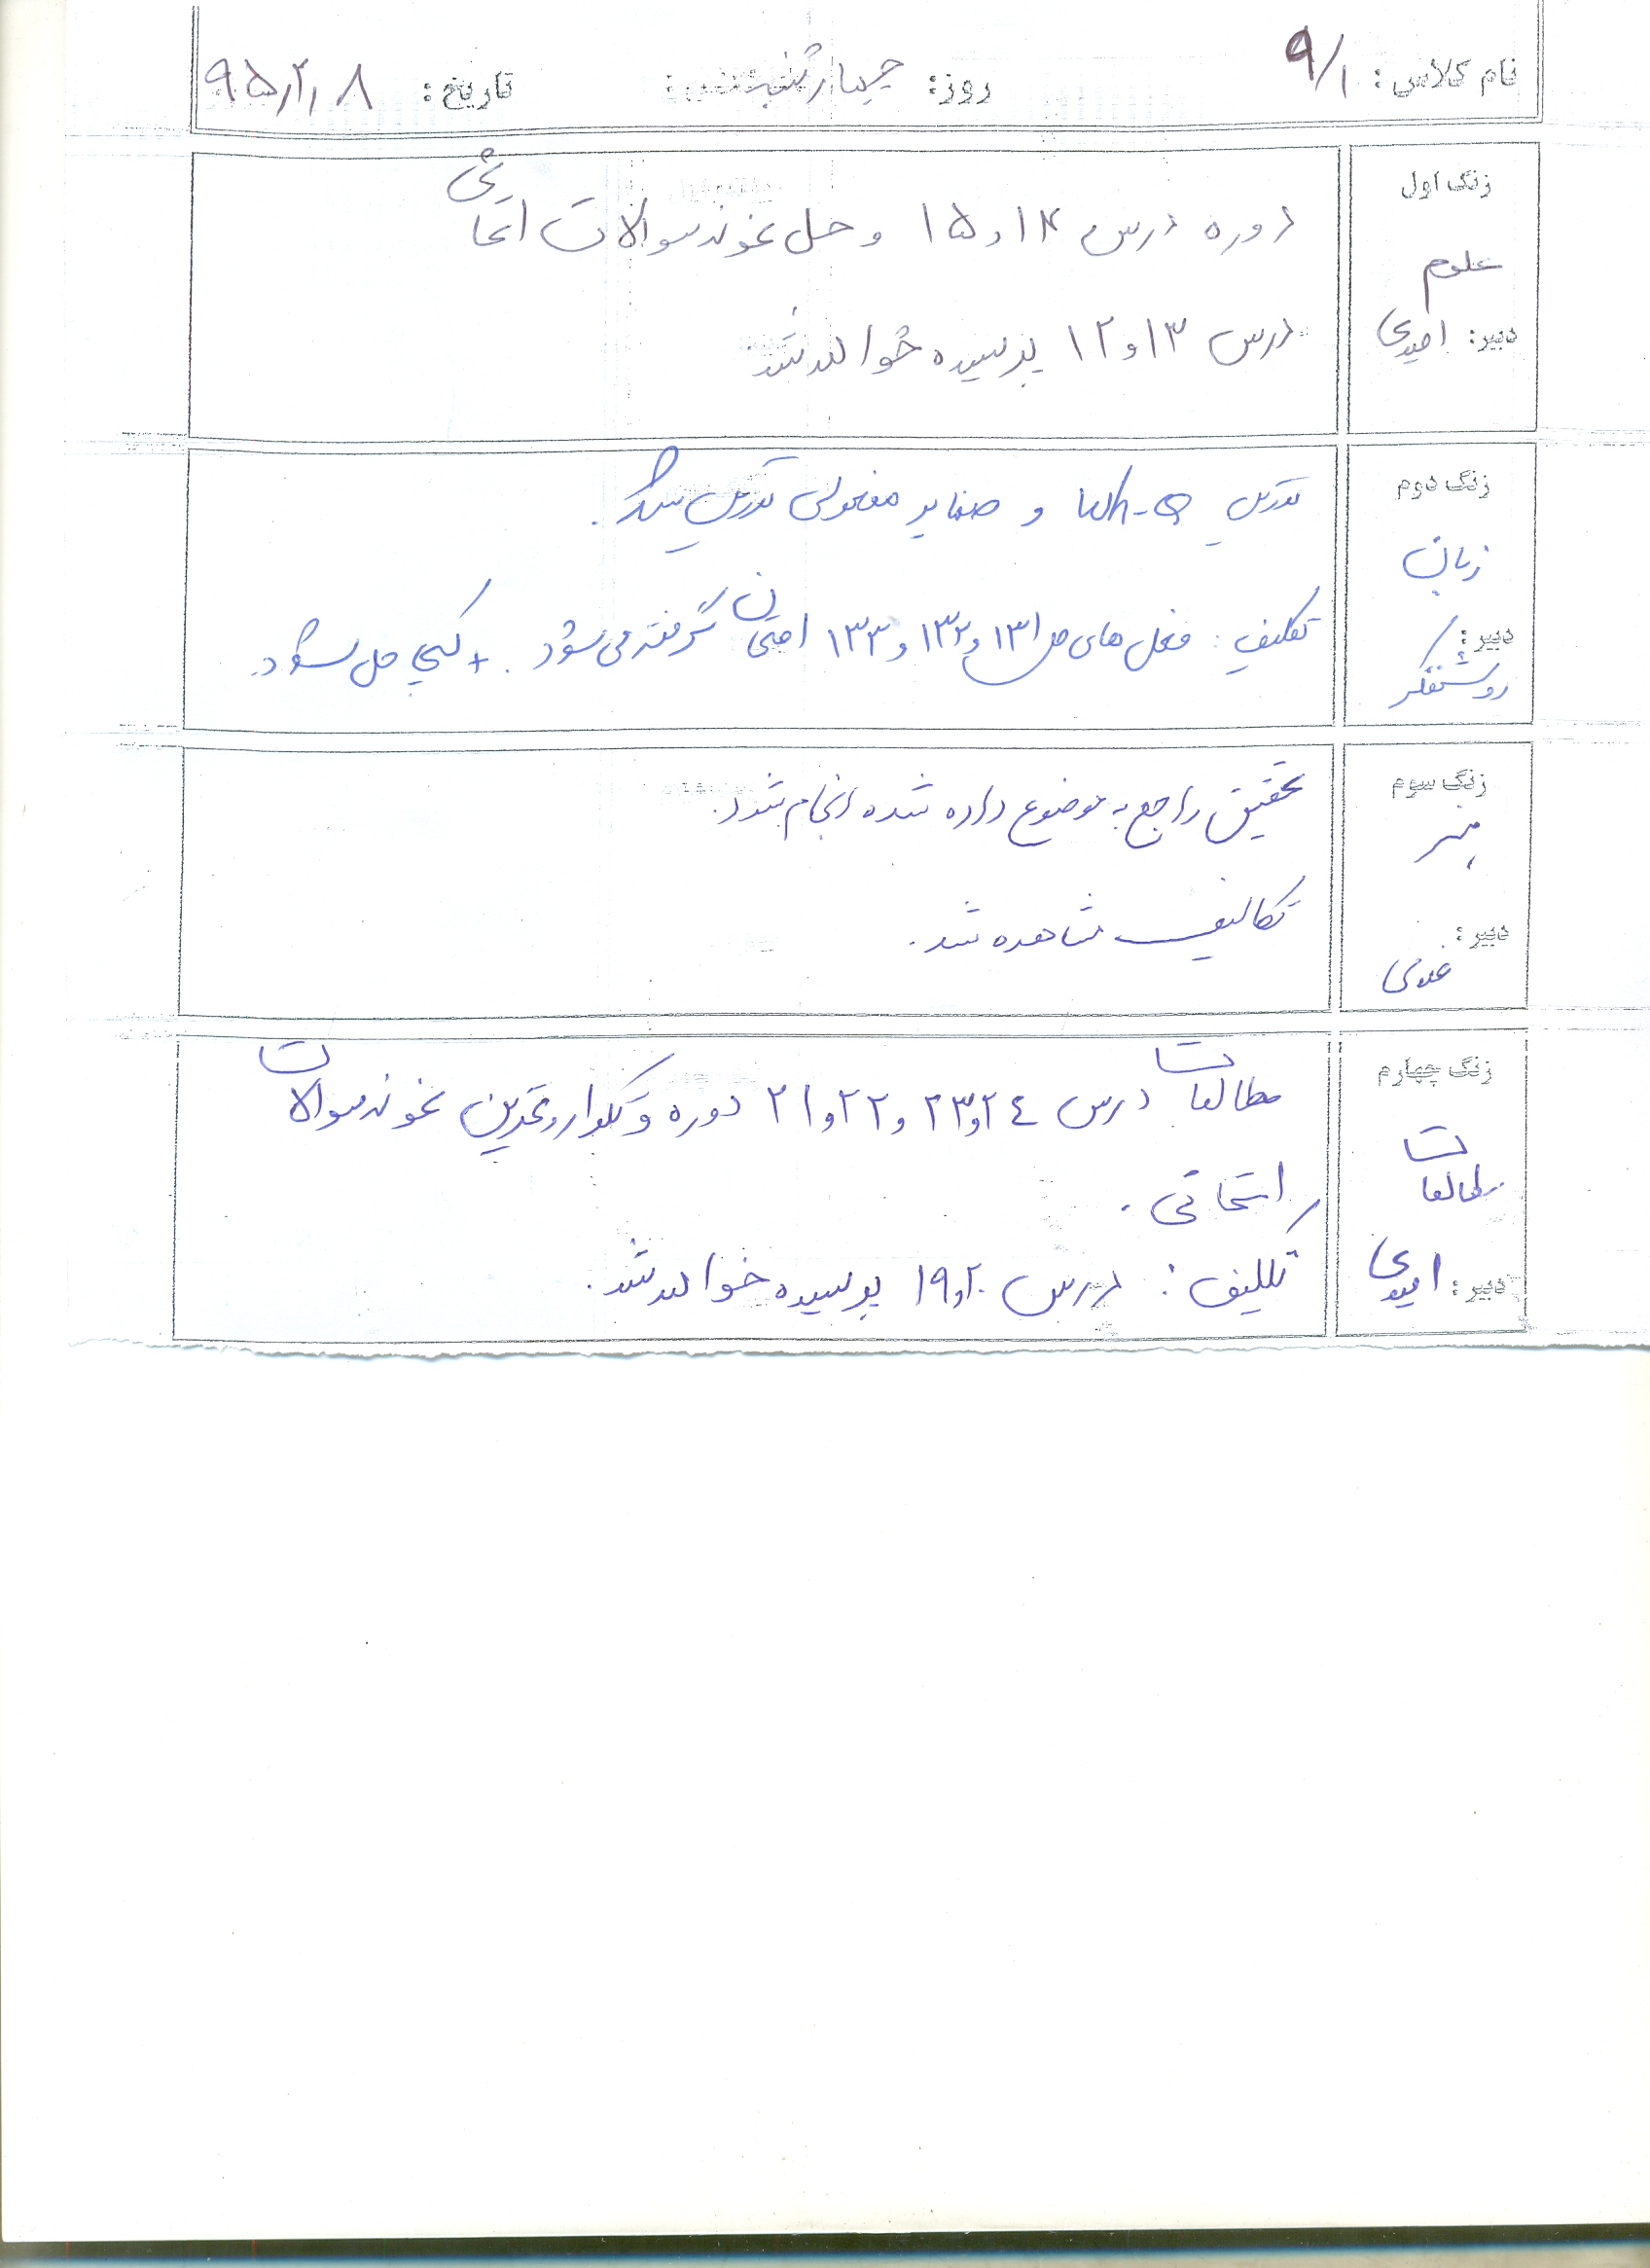 نام کلاس: ۹/۱ روز: چهارشنبه تاریخ: ۹۵/۲/۸
زنگ اول
علوم
دبیر: امیدی
دوره درس ۱۴ و ۱۵ و حل نمونه سوالات امتحانی
درس ۱۳ و ۱۲ پرسیده خواهد شد.
زنگ دوم
زبان
دبیر:
روشنفکر
تدریس Wh-Q و ضمایر مفعولی تدریس شد.
تکلیف: فعل های ص ۱۳۱ و ۱۳۲ و ۱۳۳ امتحان گرفته می شود. + کپی حل شود.
زنگ سوم
هنر
دبیر:
تحقیق راجع به موضوع داده شده انجام شود.
تکالیف مشاهده شد.
زنگ چهارم
مطالعات
دبیر: امیدی
مطالعات درس ۲۴ و ۲۳ و ۲۲ و ۲۱ دوره و تکرار و تمرین نمونه سوالات
امتحانی.
تکلیف: درس ۲۰ و ۱۹ پرسیده خواهد شد.